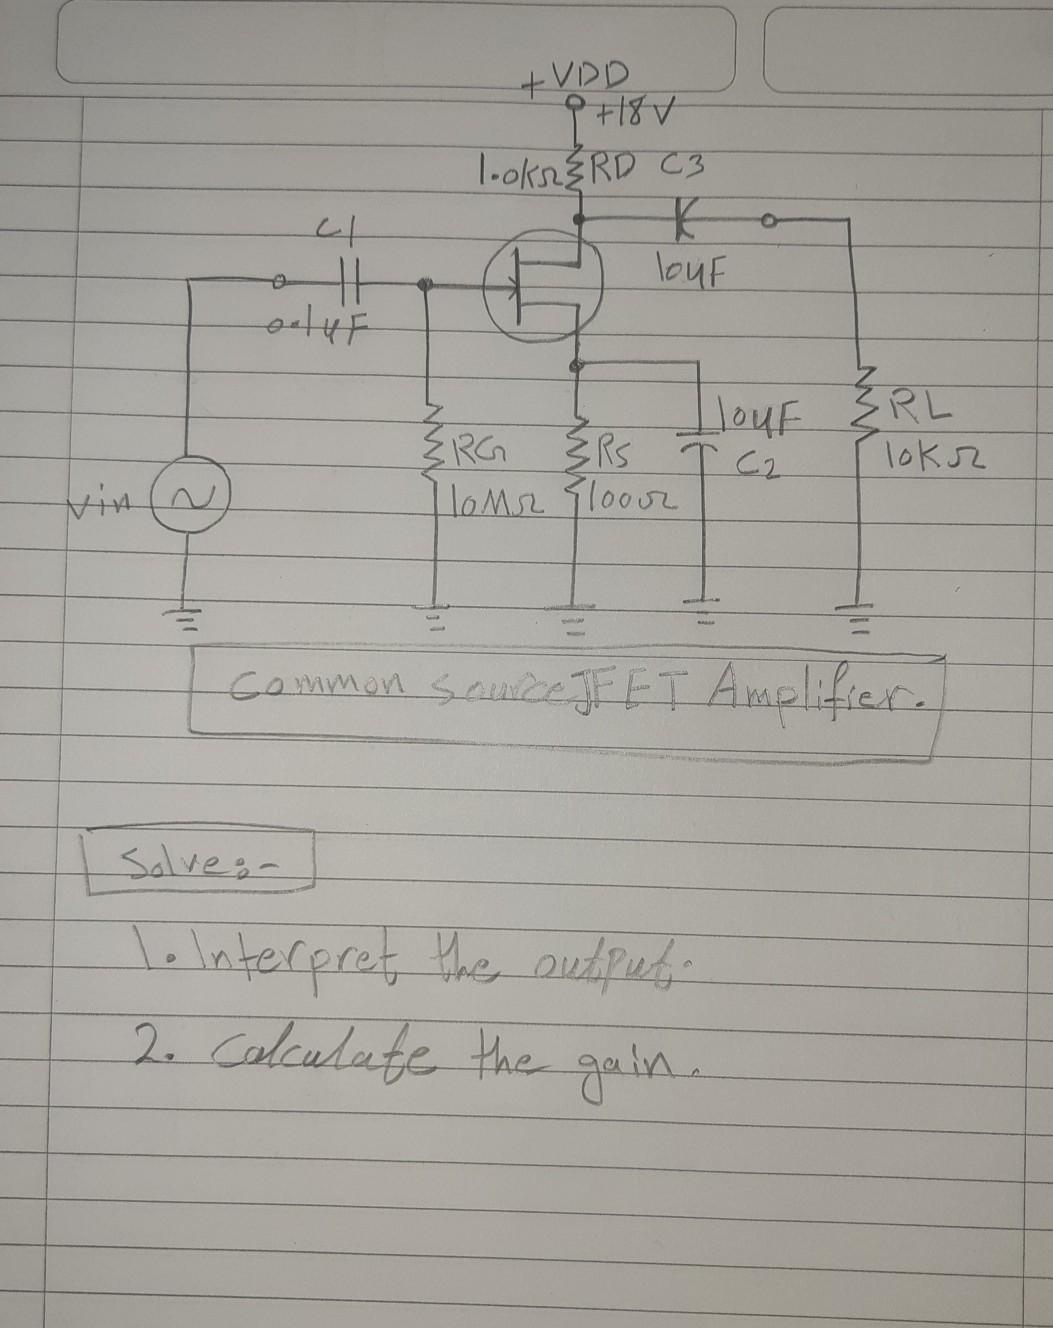 +VDD
+18V
1.0kΩ RD C3
C1
10µF
0.1µF
10µF
RL
RG
RS
C2
10KΩ
vin
10MΩ
100Ω
Common Source JFET Amplifier.
Solve:-
1. Interpret the output.
2. Calculate the gain.